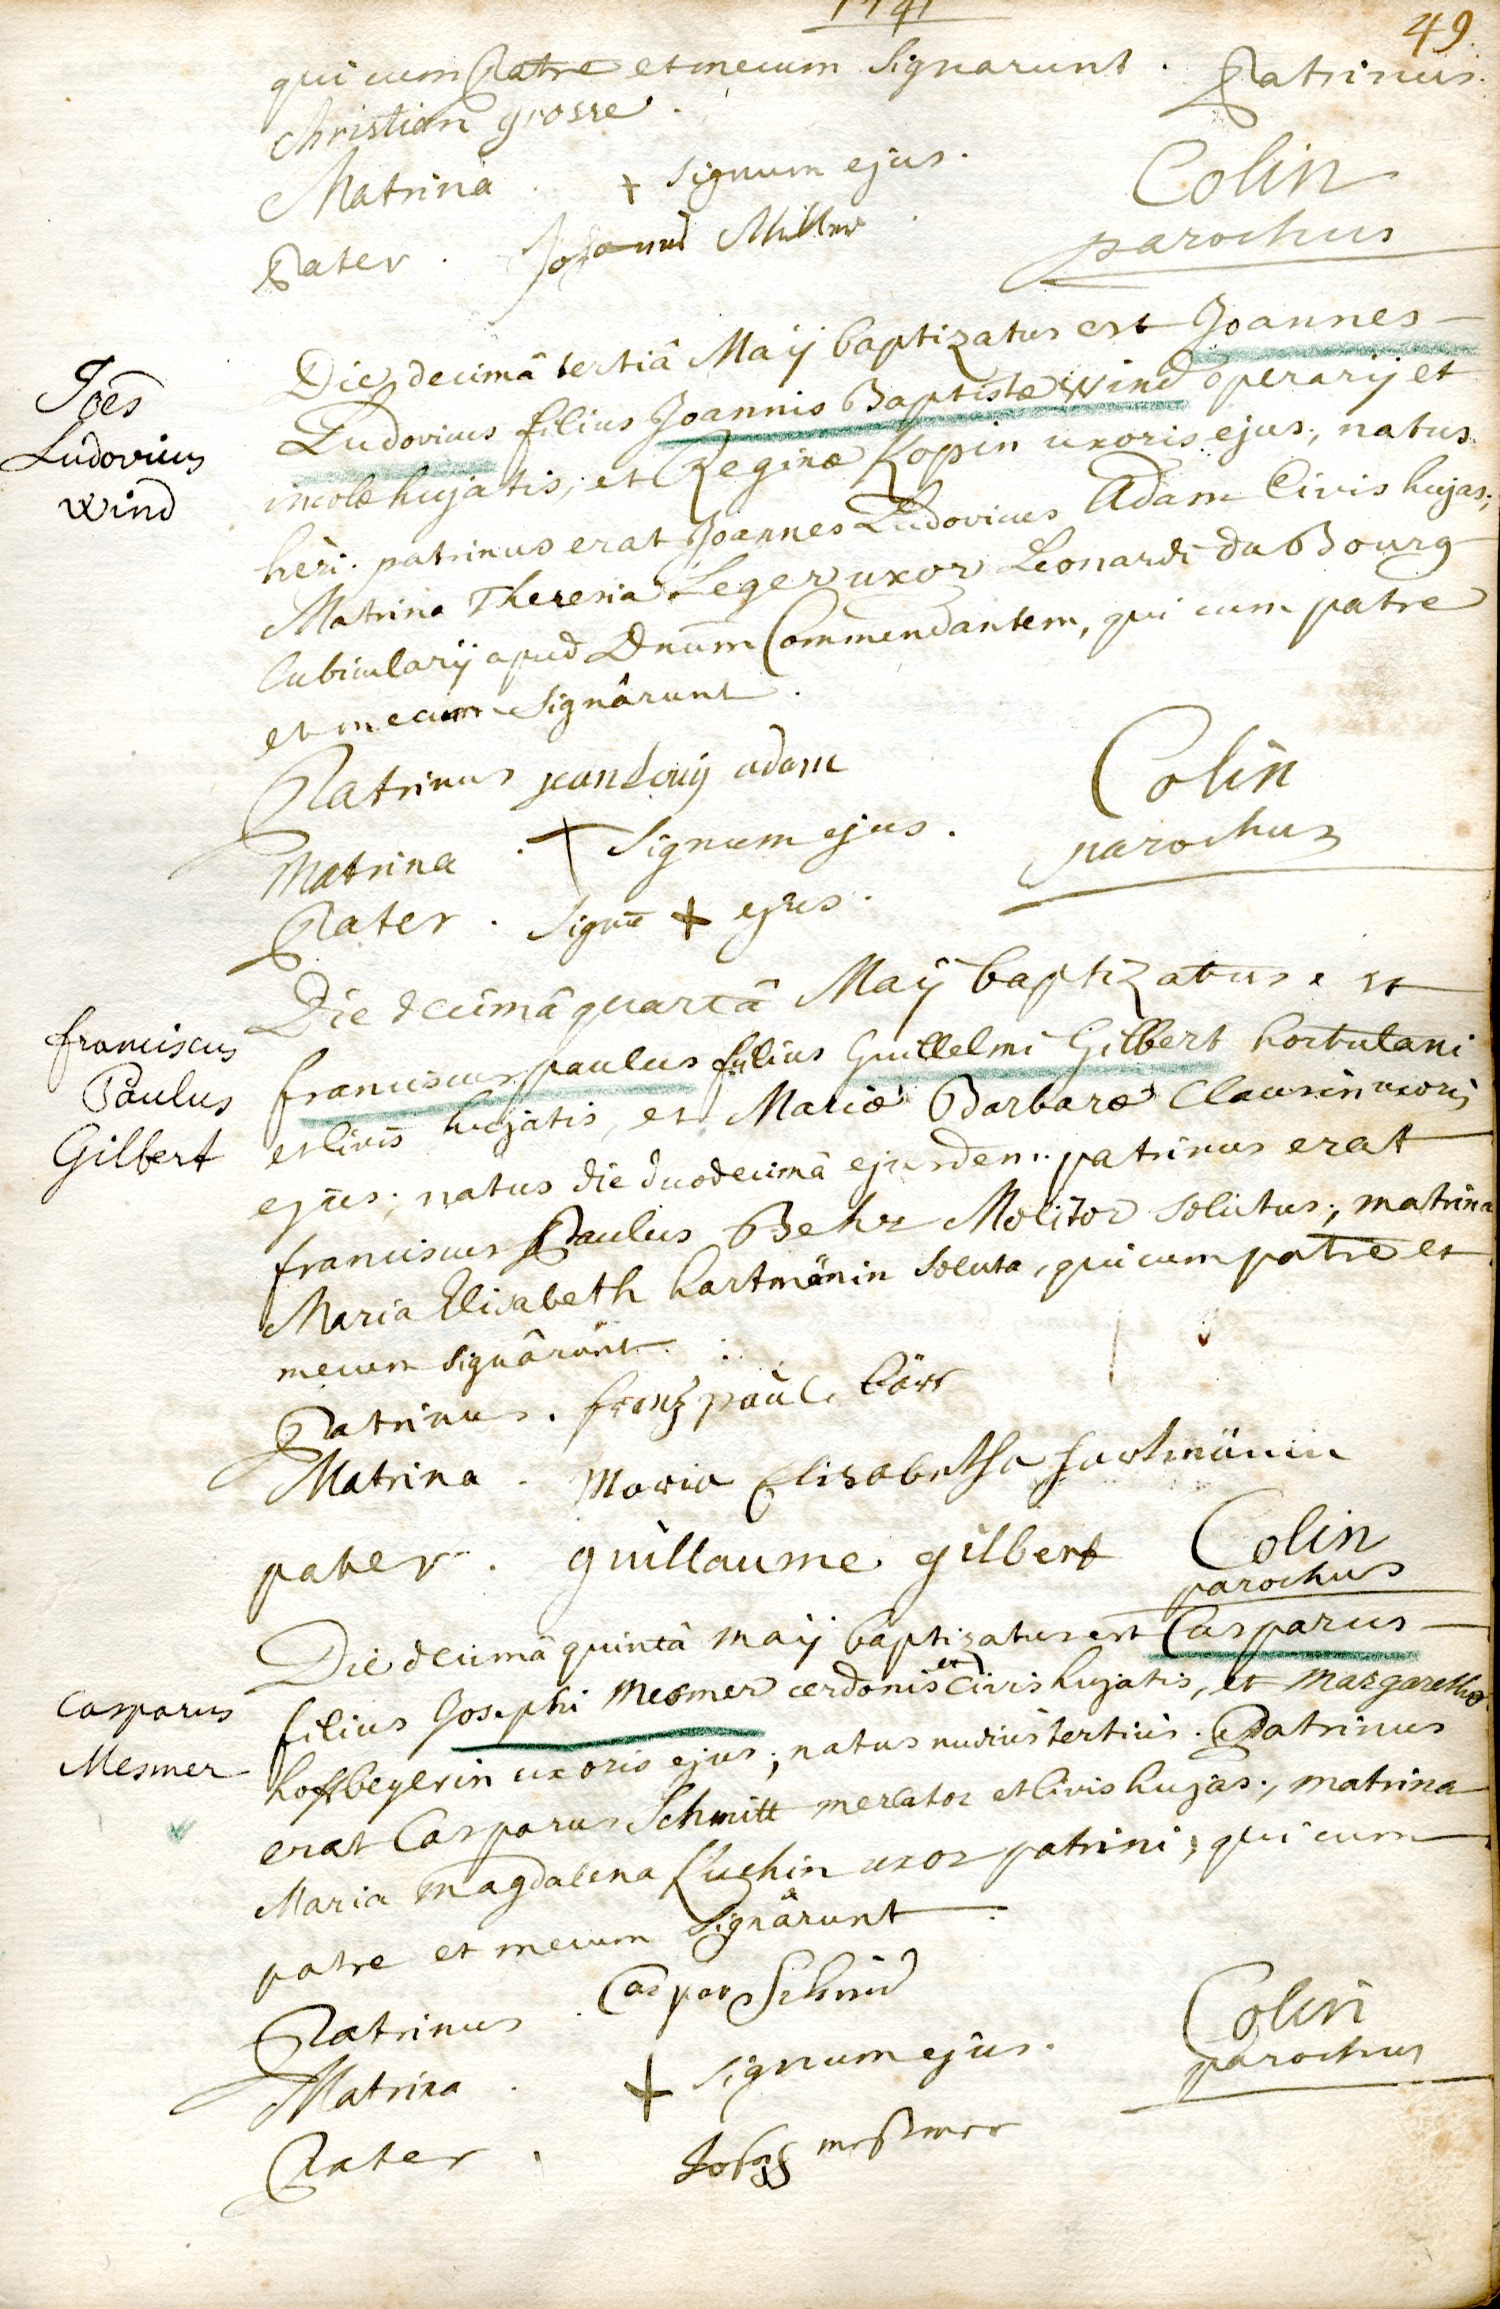 1741
49.
qui cum Patre et mecum signarunt. Patrinus.
Christian grosse.
Matrina. + signum ejus.
Colin
parochus
Pater. Johannes Müller
Joes
Ludovicus
Wind
Die decimâ tertiâ Maÿ baptizatus est Joannes
Ludovicus filius Joannis Baptistæ Wind operarÿ et
incolæ hujatis, et Reginæ Kopin uxoris ejus, natus
heri. patrinus erat Joannes Ludovicus Adam Civis hujas;
Matrina Theresia Leger uxor Leonardi du Bourg
Cubicularÿ apud Dnum Commendantem, qui cum patre
et mecum signârunt.
Patrinus jean louij adam
Colin
parochus
Matrina. + signum ejus.
Pater. signū + ejus.
franciscus
Paulus
Gilbert
Die decimâ quartâ Maÿ baptizatus est
franciscus paulus filius Guillelmi Gilbert hortulani
et civis hujatis, et Mariæ Barbaræ Clausin uxoris
ejus; natus die duodecimâ ejusdem. patrinus erat
franciscus Paulus Behr Molitor solutus; matrina
Maria Elisabeth hartmänin soluta, qui cum patre et
mecum signârunt.
Patrinus. frantz paul bärr
Matrina. Maria Elisabetha hartmännin
pater. guillaume gilbert
Colin
parochus
Casparus
Mesmer
Die decimâ quintâ maÿ baptizatus est Casparus
filius Josephi Mesmer cerdonis et Civis hujatis, et Margarethæ
hoffbeyerin uxoris ejus; natus nudius tertius. Patrinus
erat Casparus Schmitt mercator et Civis hujas; matrina
Maria Magdalena Kuchin uxor patrini, qui cum
patre et mecum signârunt.
Patrinus. Caspar Schmid
Colin
parochus
Matrina. + signum ejus.
Pater. Joseph meßmer